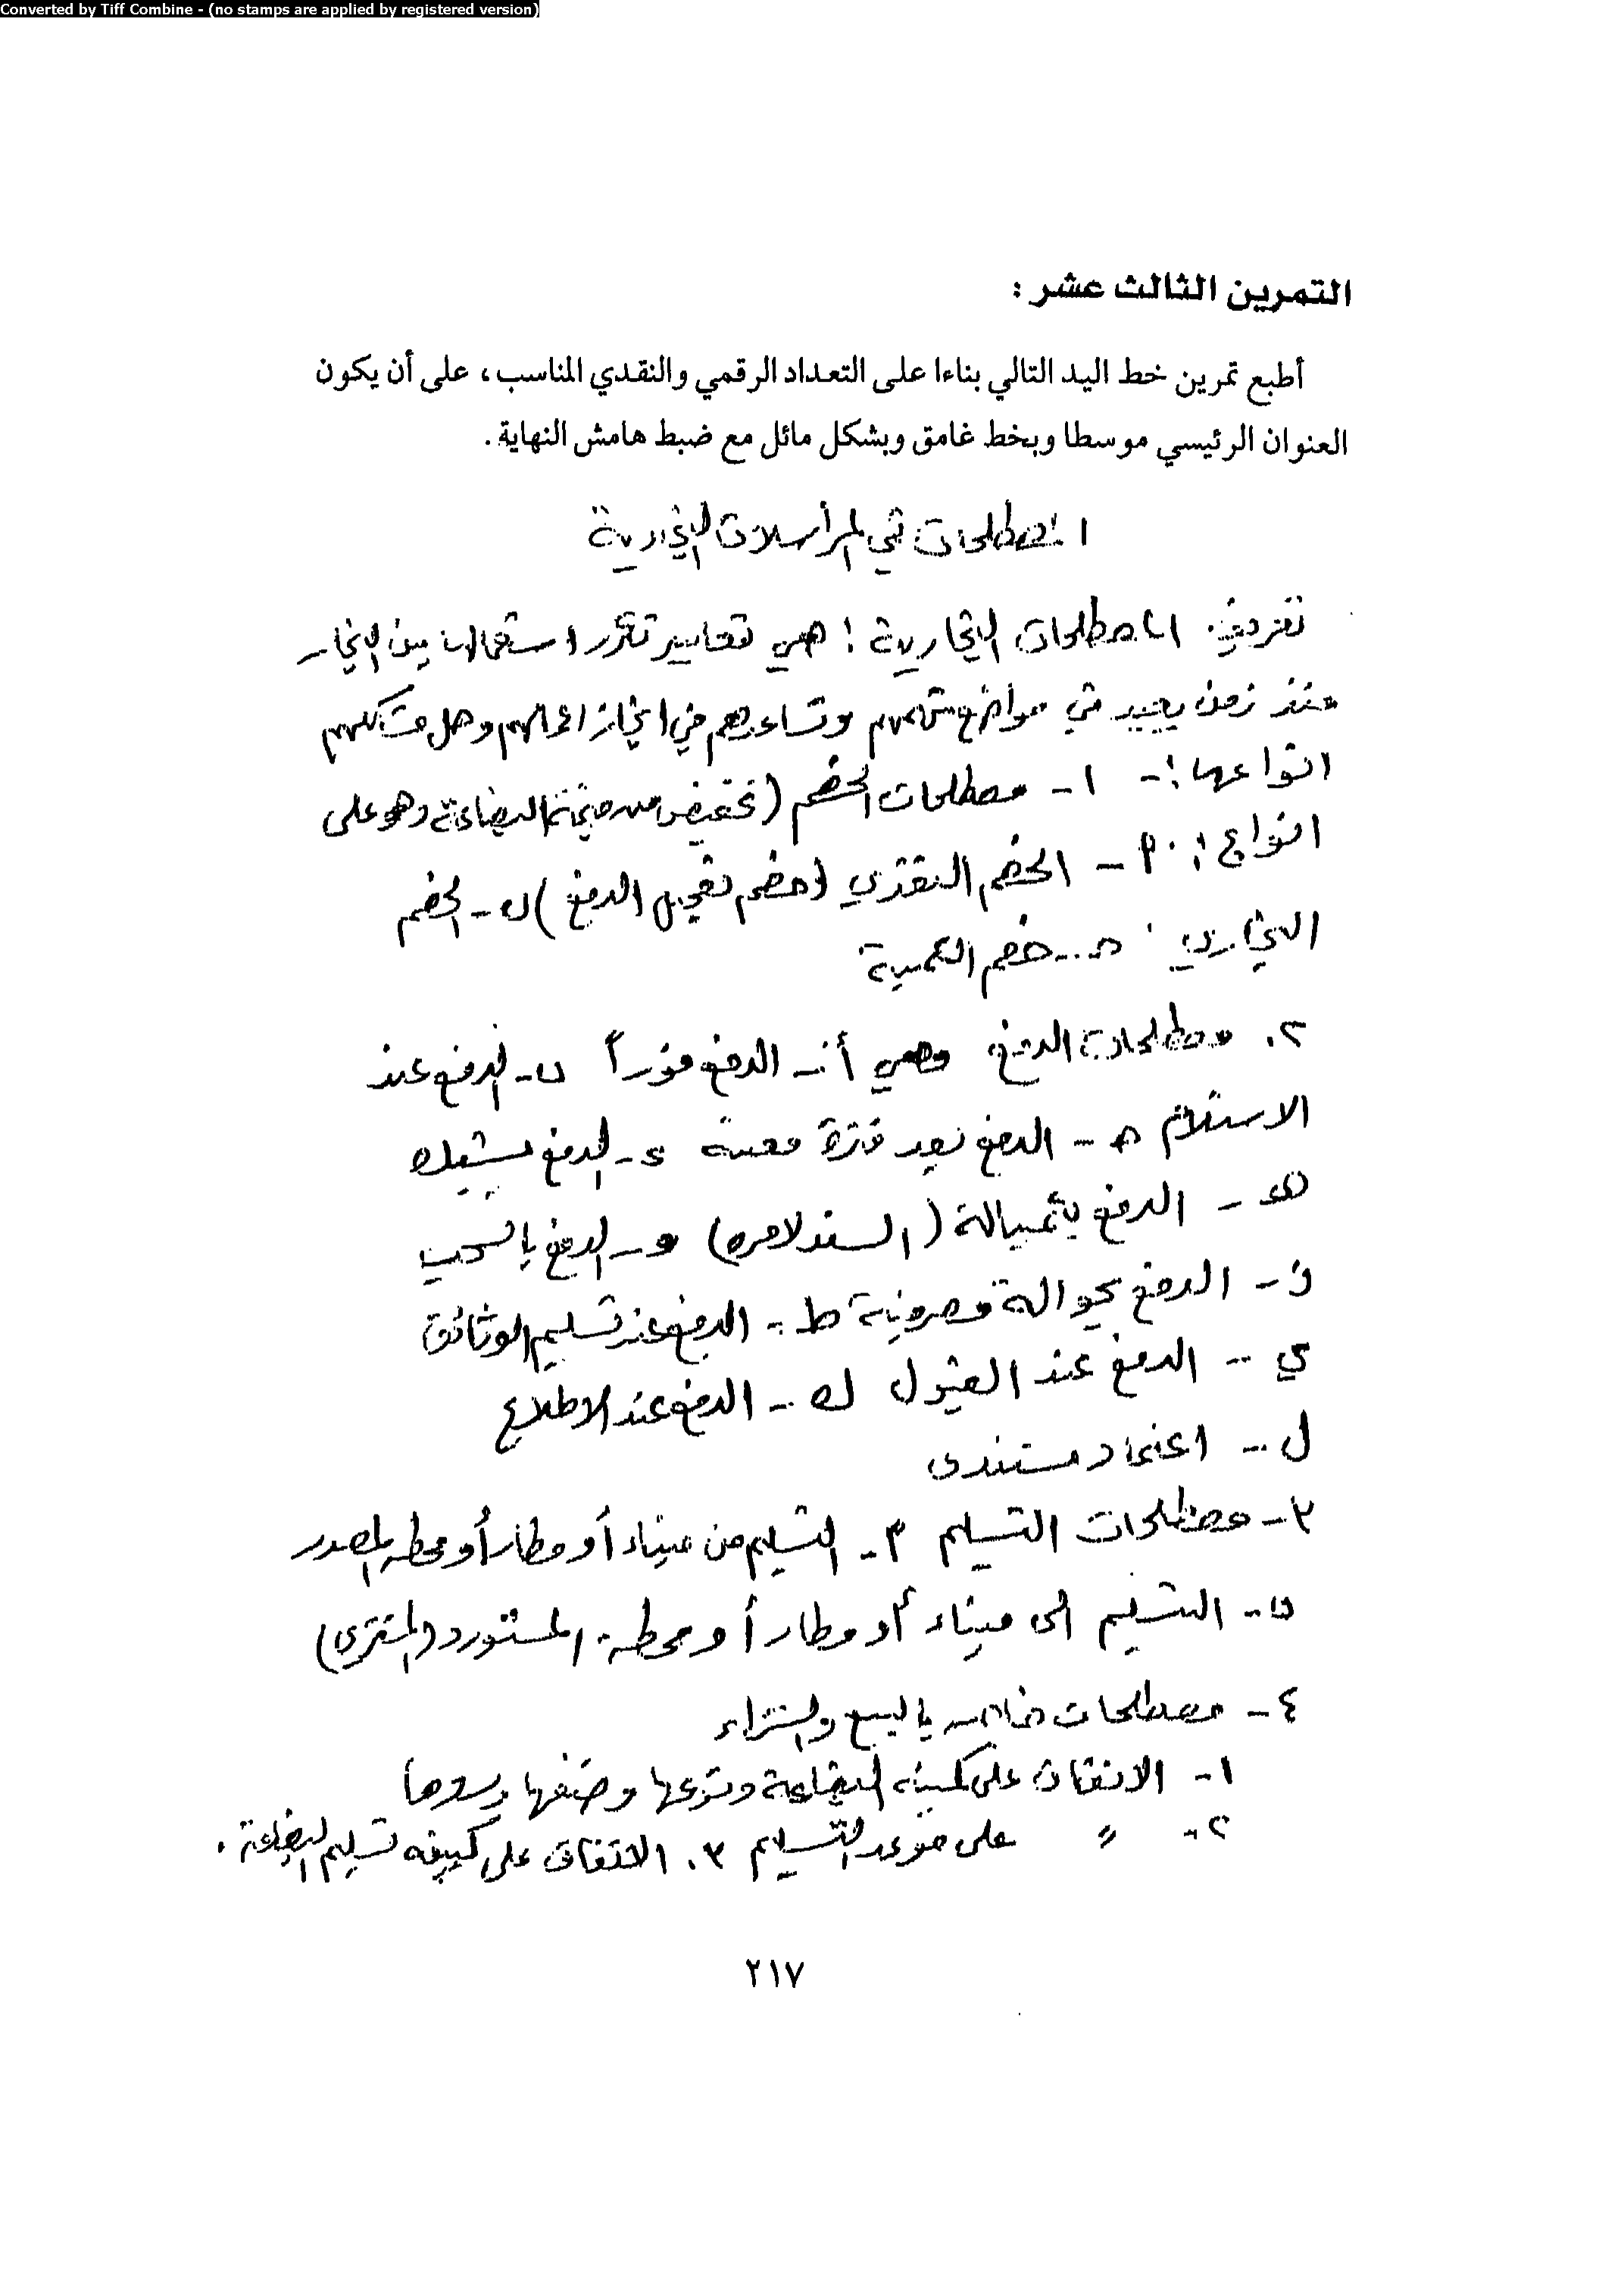 Converted by Tiff Combine - (no stamps are applied by registered version)
التمرين الثالث عشر :
أطبع تمرين خط اليد التالي بناءا على التعداد الرقمي والنقدي المناسب ، على أن يكون
العنوان الرئيسي موسطا وبخط غامق وبشكل مائل مع ضبط هامش النهاية .
المصطلحات في المراسلات التجارية
تعريف المصطلحات التجارية : هي تعابير تكرر استعمالها بين التجار
منذ زمن بعيد في مواضع وتساعدهم في انجاز اعمالهم وحل مشاكلهم
انواعها :- ١- مصطلحات الخصم (تخفيض من قيمة البضاعة وهو على
انواع : أ - الخصم النقدي (خصم تعجيل الدفع) ب - الخصم
التجاري ح - خصم الكمية
٢. مصطلحات الدفع وهي أ - الدفع فوراً ب - الدفع عند
الاستلام ح - الدفع بعد فترة معينة د - الدفع بشيك
هـ - الدفع بكمبيالة (السند لامره) و - الدفع بالسحب
ز - الدفع بحوالة مصرفية ط - الدفع عند تسليم الوثائق
ي - الدفع عند القبول ك - الدفع عند الاطلاع
ل - اعتماد مستندي
٣- مصطلحات التسليم أ - التسليم من ميناء أو مطار أو محطة المصدر
ب - التسليم الى ميناء أو مطار أو محطة المستورد (المشتري)
٤- مصطلحات خاصة بالبيع والشراء
١- الاتفاق على كمية البضاعة ونوعها وصنفها وسعرها
٢- 〃 على موعد التسليم ٣. الاتفاق على كيفية تسليم البضاعة .
٢١٧